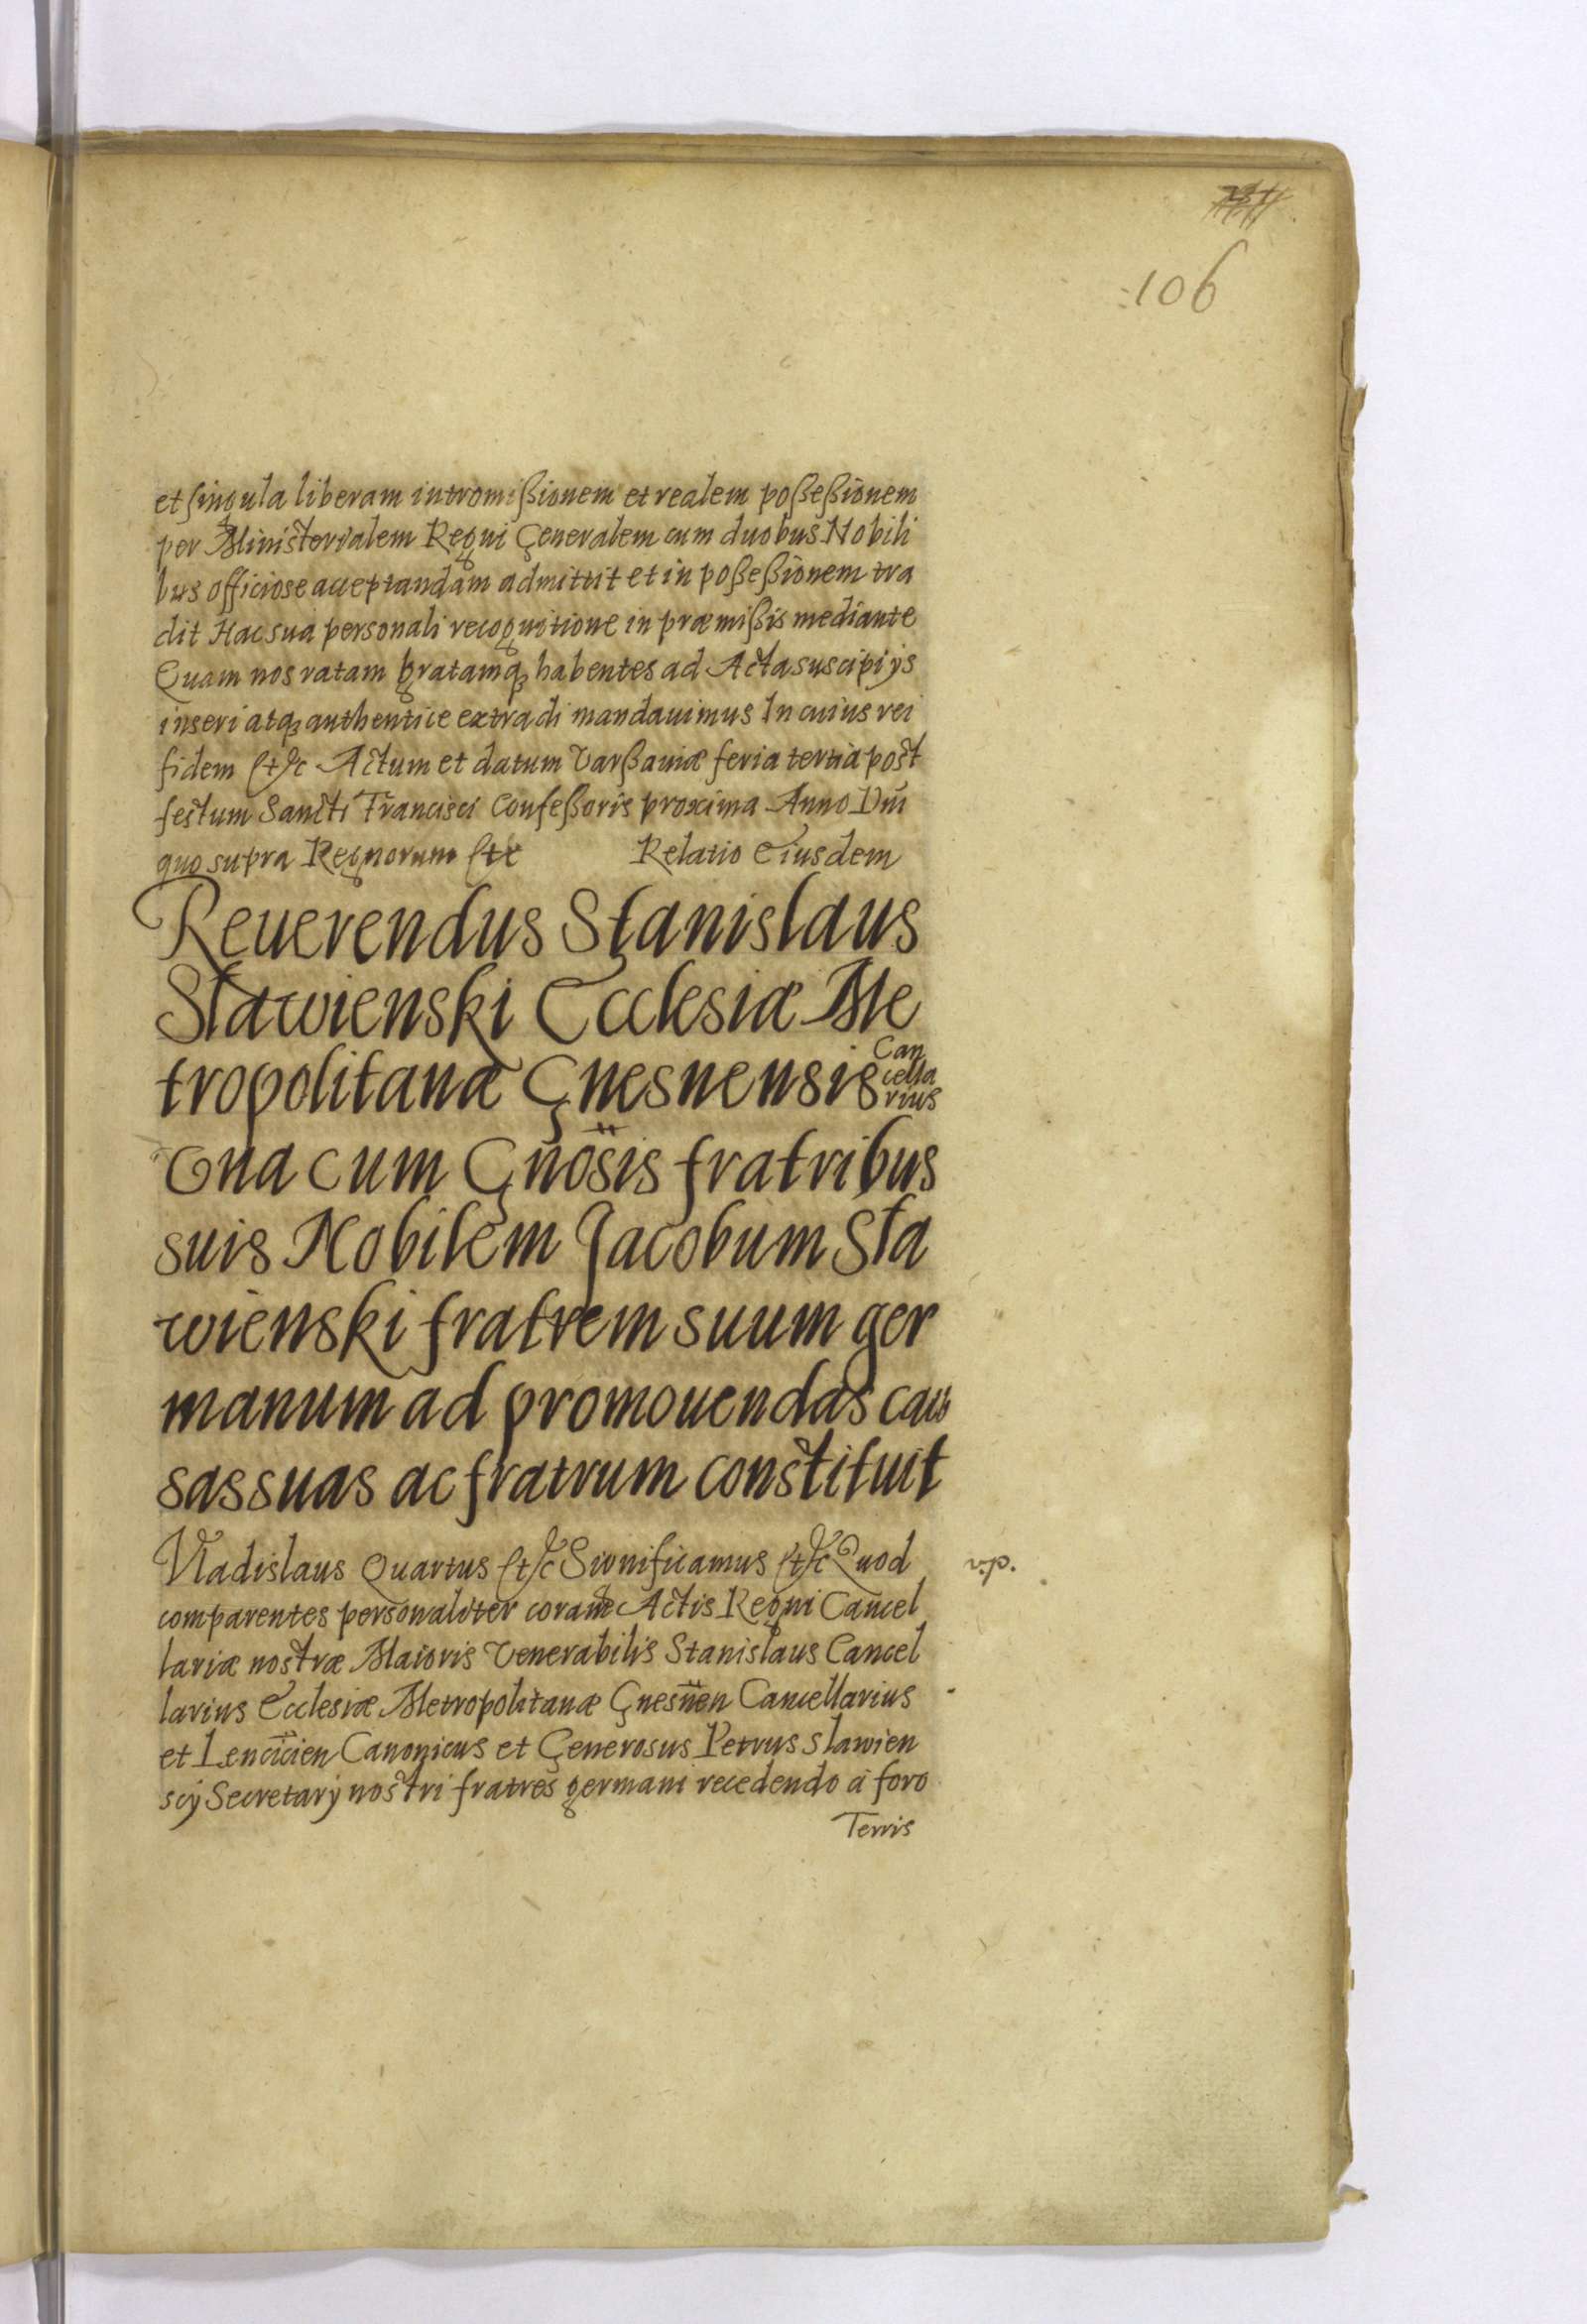 106
et singula liberam intromißionem et realem poßeßionem
per Ministerialem Regni Generalem cum duobus Nobili
bus officiose acceptandam admittit et in poßeßionem tra
dit Hac sua personali recognitione in præmißis mediante
Quam nos ratam gratamq habentes ad Acta suscipi ijs
inseri atq authentice extradi mandauimus In cuius rei
fidem etc Actum et datum Varßauiæ feria tertia post
festum Sancti Francisci Confeßoris proxima Anno Dni
quo supra Regnorum etc Relatio Eiusdem
Reuerendus Stanislaus
Sławienski Ecclesiæ Me
tropolitanæ Gnesnensis Can
cella
rius
Vna cum Gnosis fratribus
suis Nobilem Jacobum Sła
wienski fratrem suum ger
manum ad promouendas cau
sas suas ac fratrum constituit
Vladislaus Quartus etc Significamus etc Quod
comparentes personaliter coram Actis Regni Cancel
lariæ nostræ Maioris Venerabilis Stanislaus Cancel
larius Ecclesiæ Metropolitanæ Gnesnen Cancellarius
et Lencicien Canonicus et Generosus Petrus Slawien
scij Secretarij nostri fratres germani recedendo à foro
Terris